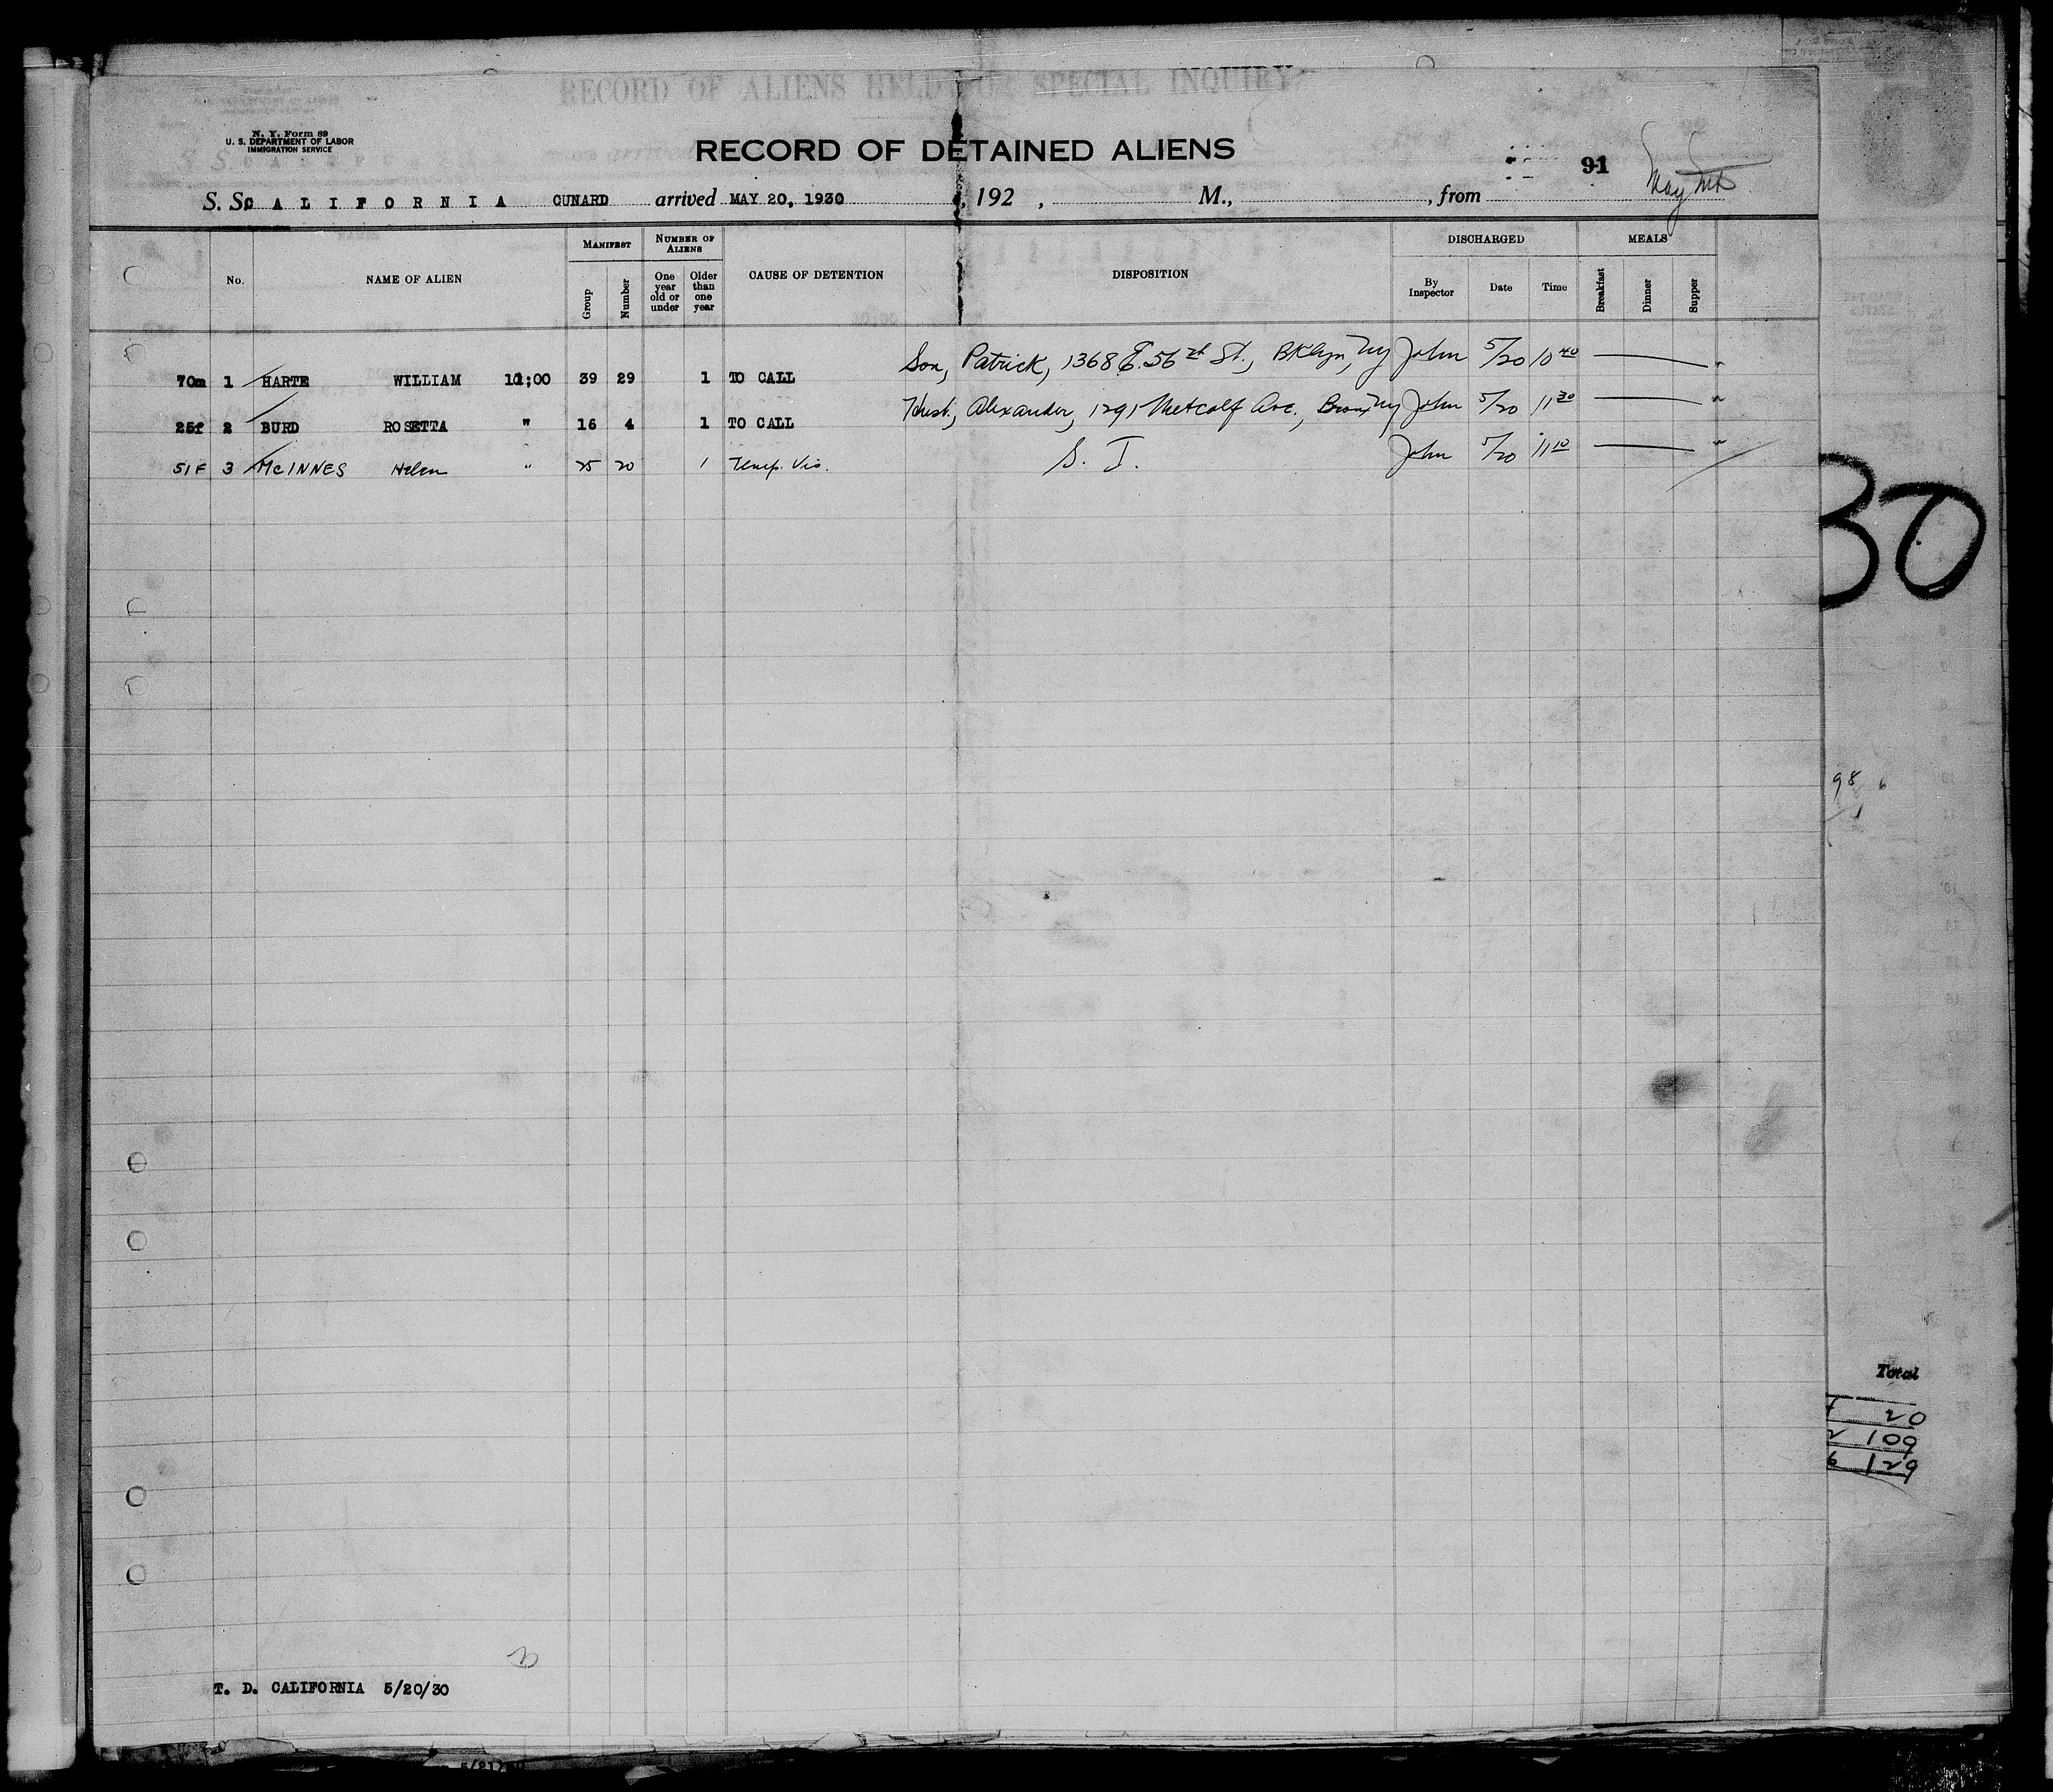 RECORD OF ALIENS HELD FOR SPECIAL INQUIRY
N. Y. Form 89
U. S. DEPARTMENT OF LABOR
IMMIGRATION SERVICE
RECORD OF DETAINED ALIENS
91
S. S. CALIFORNIA CUNARD arrived MAY 20, 1930, 192 , M., , from
No. NAME OF ALIEN MANIFEST Group Number NUMBER OF ALIENS One year old or under Older than one year CAUSE OF DETENTION DISPOSITION DISCHARGED By Inspector Date Time MEALS Breakfast Dinner Supper
70m 1 HARTE WILLIAM 10;00 39 29 1 TO CALL Son, Patrick, 1368 E. 56th St., Bklyn, Ny John 5/20 10 40
25f 2 BURD ROSETTA " 16 4 1 TO CALL Husb, Alexander, 1291 Metcalf Ave., Bronx Ny John 5/20 11 30
51F 3 McINNES Helen " 25 20 1 Temp. Vis. S. I. John 5/20 11 10
30
98 6
Total
20
2 109
6 129
3
T. D. CALIFORNIA 5/20/30